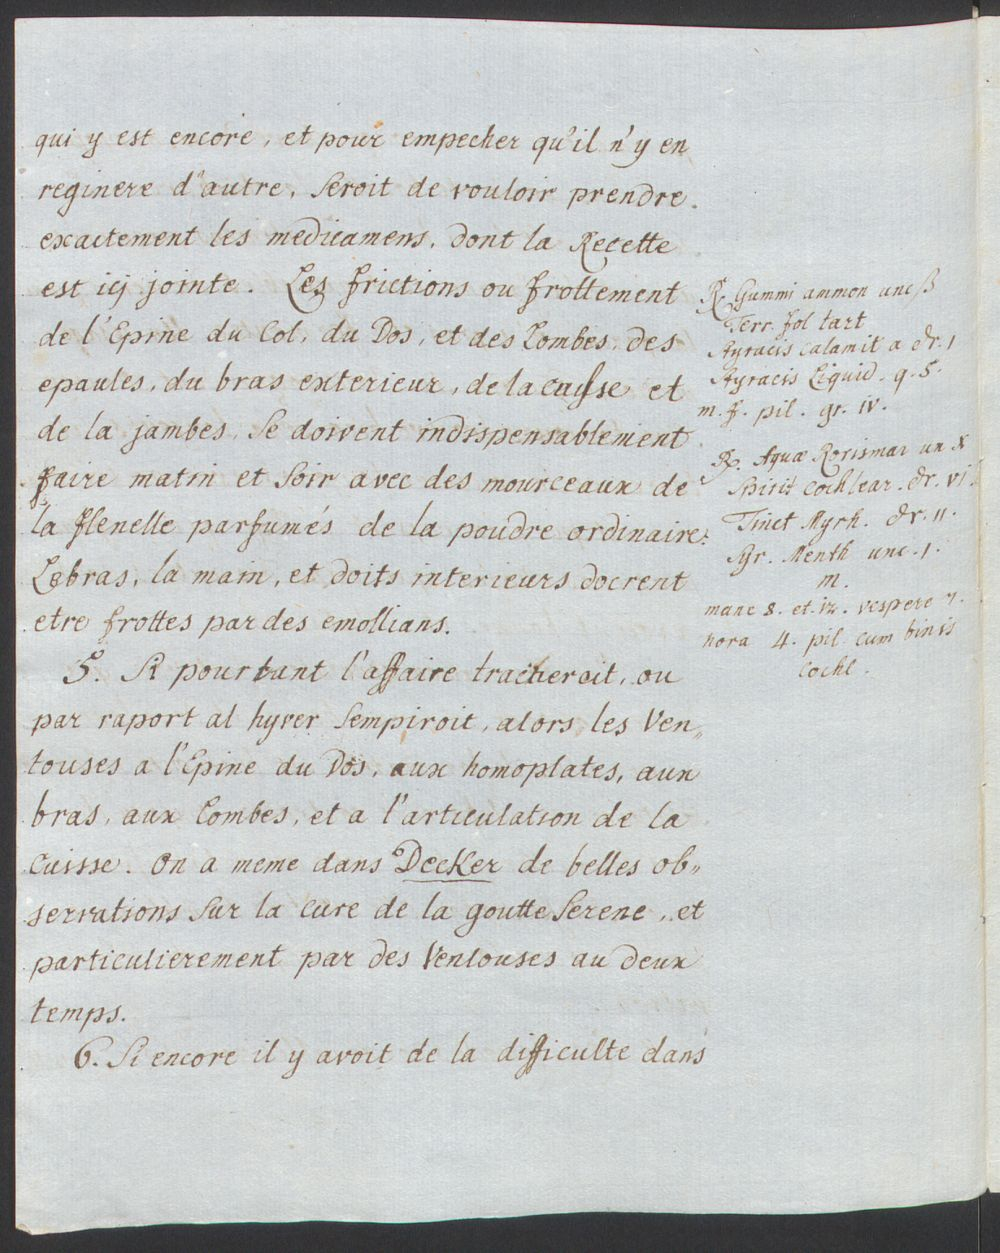 qui y est encore, et pour empecher qu'il n'y en
reginere d'autre, seroit de vouloir prendre
exactement les medicamens, dont la Recette
est icy jointe. Les frictions ou frottement
de l'Epine du Col, du Dos, et des Lombes, des
epaules, du bras exterieur, de la cuisse et
de la jambes, se doivent indispensablement
faire matin et soir avec des mourceaux de
la flenelle parfumés de la poudre ordinaire.
Lebras, la main, et doits interieurs docrent
etre frottes par des emollians.
5. Si pourtant l'affaire tracherait, ou
par raport al hyver sempiroit, alors les Ven„
touses a l'Epine du Dos, aux homoplates, aux
bras, aux Lombes, et a l'articulation de la
cuisse. On a meme dans Decker de belles ob„
servations sur la cure de la goutte serene, et
particulierement par des Ventouses au deux
temps.
6. Si encore il y avoit de la difficulte dans
℞ Gummi ammon unc ß
Terr. fol tart
Styracis calamit a dr. 1
Styracis Liquid. q. S.
m. f. pil. gr. iv.
℞. Aquæ Rorismar un X
Spirit cochlear. dr. vi.
Tinct Myrh. dr. 11.
Syr. Menth unc. 1.
m.
mane 8. et 12. vespere 7.
hora 4. pil cum binis
cochl.